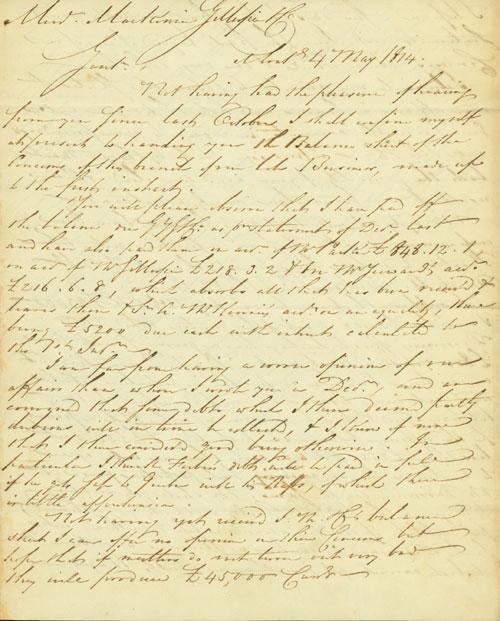 Mess. Mackenzie Gillespie & Co.
4 May 1814.
Gent.
Not having had the pleasure of hearing
from you since last October I shall confine myself
at present to handing you the Balance sheet of the
Concerns of this branch of our late Business, made up
to the first instant.
You will please observe that I have paid off
the balance as pr statement of Decr last
and have also paid them on acct of £848.12.1
on acct of Mr Gillespie £218.3.2 & on acct
£216.6.8, which absorbs all that has been received &
leaves them & acct on an equality, there
being £5200 due each with interest calculated to
the 1st Inst.
I am far from having a worse opinion of our
affairs than when I wrote you in Decr, and am
convinced that some debts which I then deemed partly
dubious will in time be collected, & I know of none
that I then considered good being otherwise. In
particular I think debt will be paid in full
if he gets safe to with his , of which there
is little apprehension.
Not having yet received balance
sheet I can offer no opinion on their Concerns but
hope that if matters do not turn out very bad
they will produce £45,000